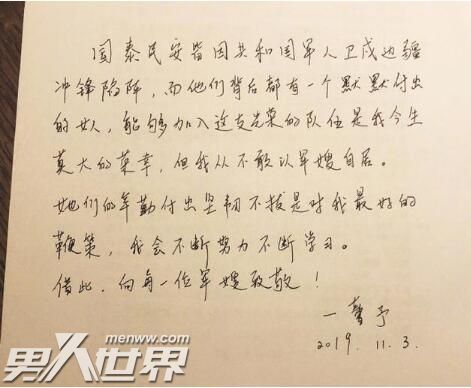 国泰民安皆因共和国军人卫戍边疆
冲锋陷阵，而他们背后都有一个默默付出
的女人，能够加入这支光荣的队伍是我今生
莫大的荣幸，但我从不敢以军嫂自居。
她们的辛勤付出坚韧不拔是对我最好的
鞭策，我会不断努力不断学习。
借此，向每一位军嫂致敬！
一馨予
2019. 11. 3.
男人世界
menww.com